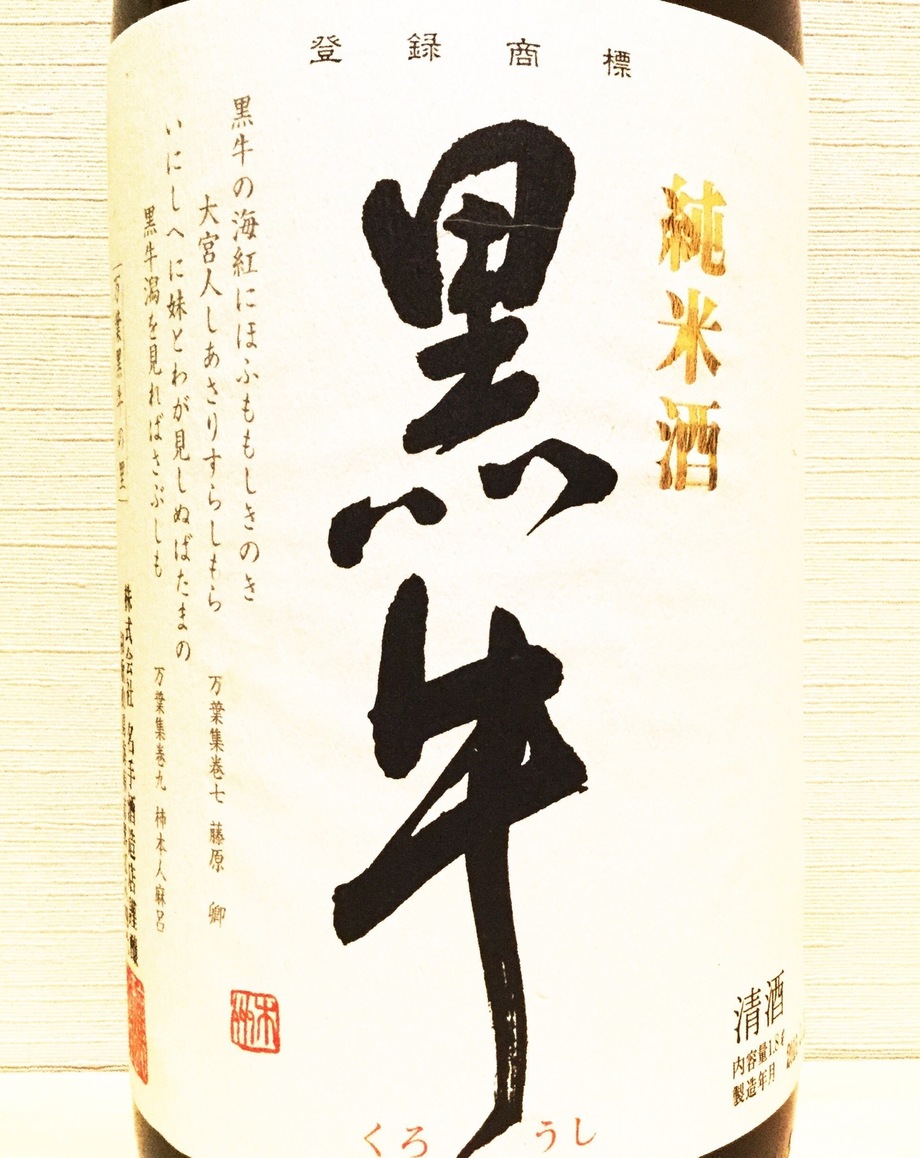 登録商標
純米酒
黒牛
くろうし
黒牛の海紅にほふももしきのき
大宮人しあさりすらしもら
万葉集巻七 藤原 卿
いにしへに妹とわが見しぬばたまの
黒牛潟を見ればさぶしも
万葉集巻九 柿本人麻呂
株式会社 名手酒造店謹醸
清酒
内容量1.8ℓ
製造年月